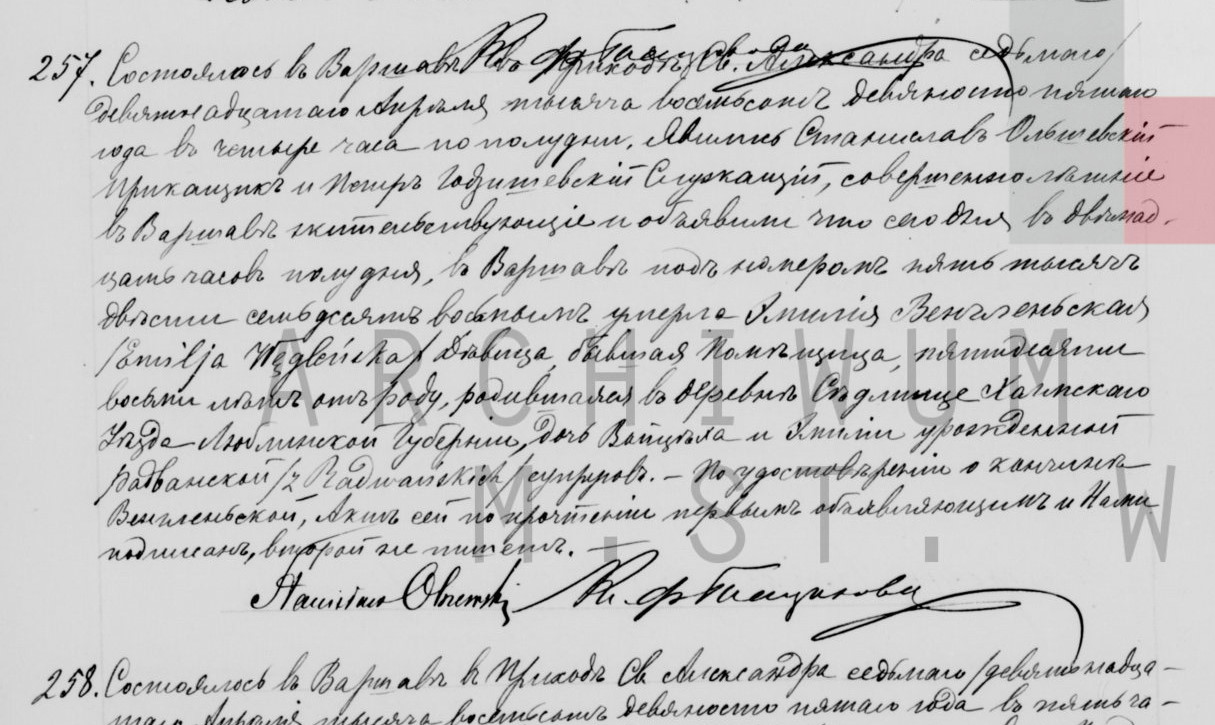 257. Состоялось въ Варшавѣ въ Приходѣ Св. Александра седьмаго/
девятнадцатаго Апрѣля тысяча восемьсотъ девяносто пятаго
года въ четыре часа по полудни. Явились Станиславъ Ольшевскій
Прикащикъ и Петръ Служащій, совершеннолѣтніе
въ Варшавѣ жительствующіе и объявили что сего дня въ двѣнад-
цать часовъ полудня, въ Варшавѣ подъ номеромъ пять тысячъ
двѣсти семьдесятъ восьмымъ умерла Эмилія Венгленьская
/Emilja Дѣвица, бывшая Помѣщица, пятидесяти
восьми лѣтъ отъ роду, родившаяся въ деревнѣ Сѣдлище Холмскаго
Уѣзда Люблинской Губерніи, дочь Войцѣха и Эмиліи урожденной
Радванской /z Radwańskich/ супруговъ. – По удостовѣреніи о кончинѣ
Венгленьской, Актъ сей по прочтеніи первымъ объявляющимъ и Нами
подписанъ, второй не пишетъ. –
Stanisław Olszewski
258. Состоялось въ Варшавѣ въ Приходѣ Св Александра седьмаго /девятнадца-
таго Апрѣля тысяча восемьсотъ девяносто пятаго года въ пять ча-
ARCHIWUM
M. ST. W